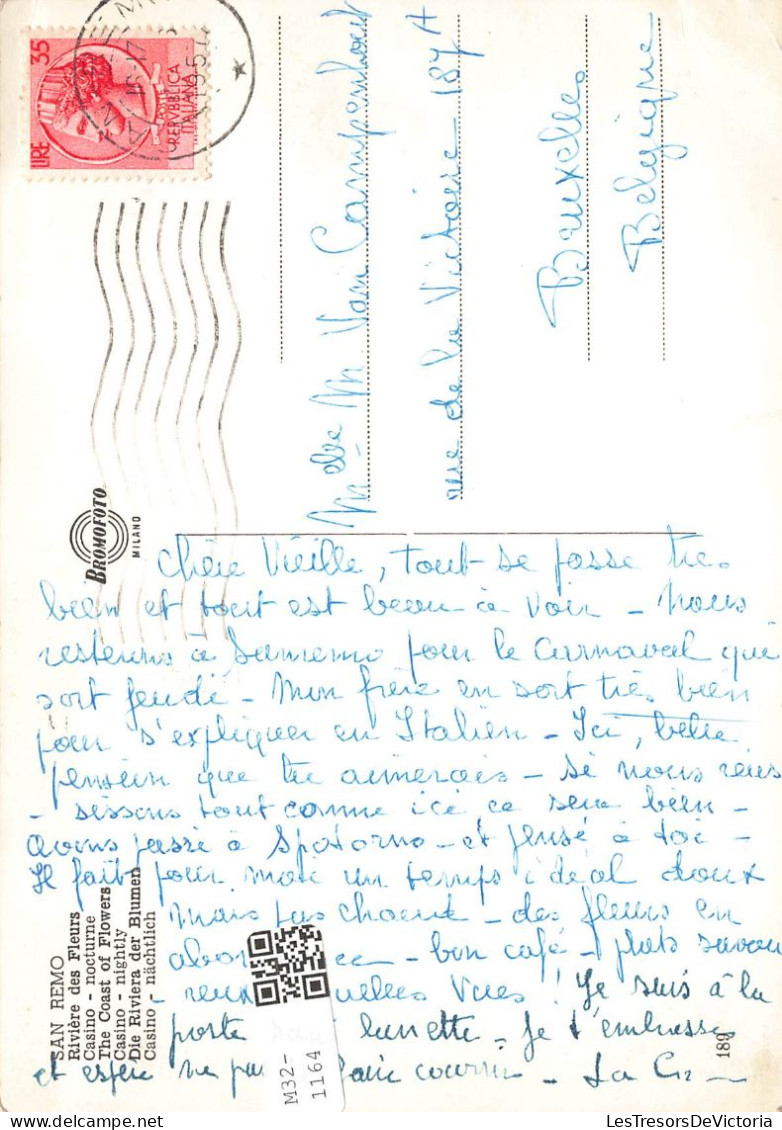 35
LIRE
POSTE
REPVBBLICA
ITALIANA
Mde M. Van Campenhout
rue de la Victoire 187 A
Bruxelles
Belgique
BROMOFOTO
MILANO
Chère Vieille, tout se passe très
bien et tout est beau à voir – Nous
resterons à Sanremo pour le Carnaval qui
sort jeudi – Mon frère en sort très bien
pour s'expliquer en Italien – Ici, belle
pension que tu aimerais – Si nous réus
– sissons tout comme ici ce sera bien –
Avons passé à Spotorno – et pensé à toi –
Il fait pour moi un temps idéal doux
mais pas chaud – des fleurs en
– bon café – plats savou
– reux vues ! Je suis à la
porte sans lunette – Je t'embrasse
et espère ne pas faire courir – La
SAN REMO
Rivière des Fleurs
Casino - nocturne
The Coast of Flowers
Casino - nightly
Die Riviera der Blumen
Casino - nächtlich
189
M32-
1164
LesTresorsDeVictoria.com